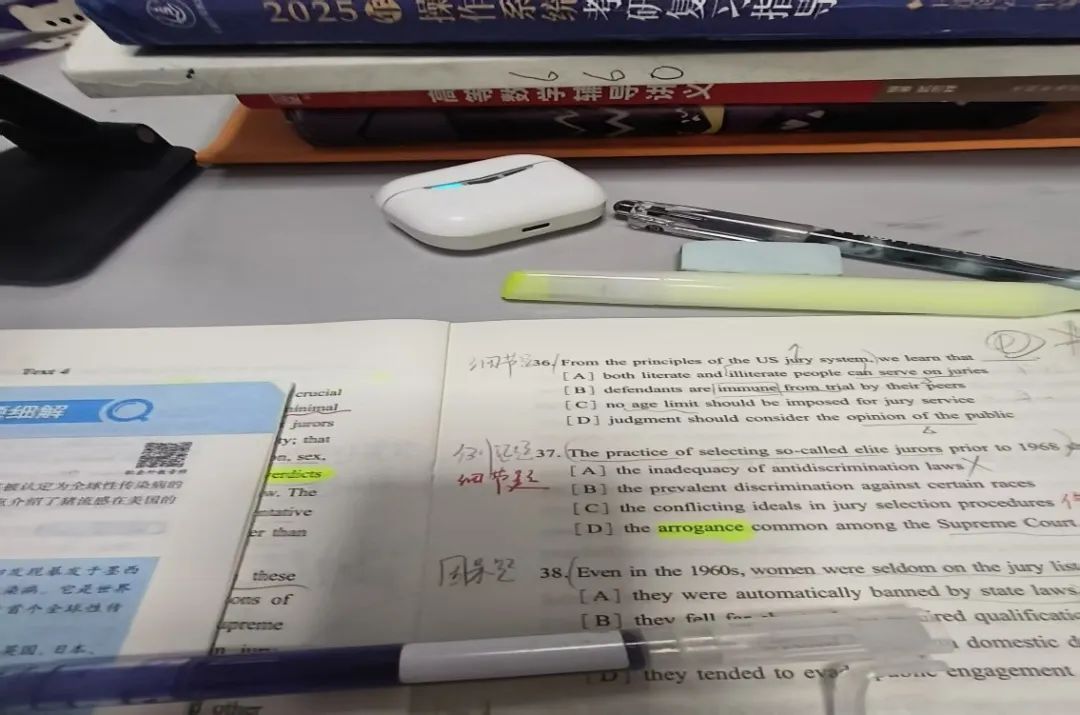 2025年操作系统考研复习指导
660
高等数学辅导讲义
Text 4
细解
被认定为全球性传染病的
介绍了猪流感在美国的
发现暴发于墨西
染病。它是世界
首个全球性传
英国、日本、
crucial
minimal
jurors
ty; that
on, sex,
verdicts
w. The
ntative
er than
these
ons of
upreme
n jury
other
细节题 36. From the principles of the US jury system, we learn that
[A] both literate and illiterate people can serve on juries
[B] defendants are immune from trial by their peers
[C] no age limit should be imposed for jury service
[D] judgment should consider the opinion of the public
例证题 37. The practice of selecting so-called elite jurors prior to 1968
细节题 [A] the inadequacy of antidiscrimination laws
[B] the prevalent discrimination against certain races
[C] the conflicting ideals in jury selection procedures
[D] the arrogance common among the Supreme Court
因果题 38. Even in the 1960s, women were seldom on the jury list
[A] they were automatically banned by state laws
[B] they fell for ired qualificatio
domestic d
[D] they tended to eva public engagement